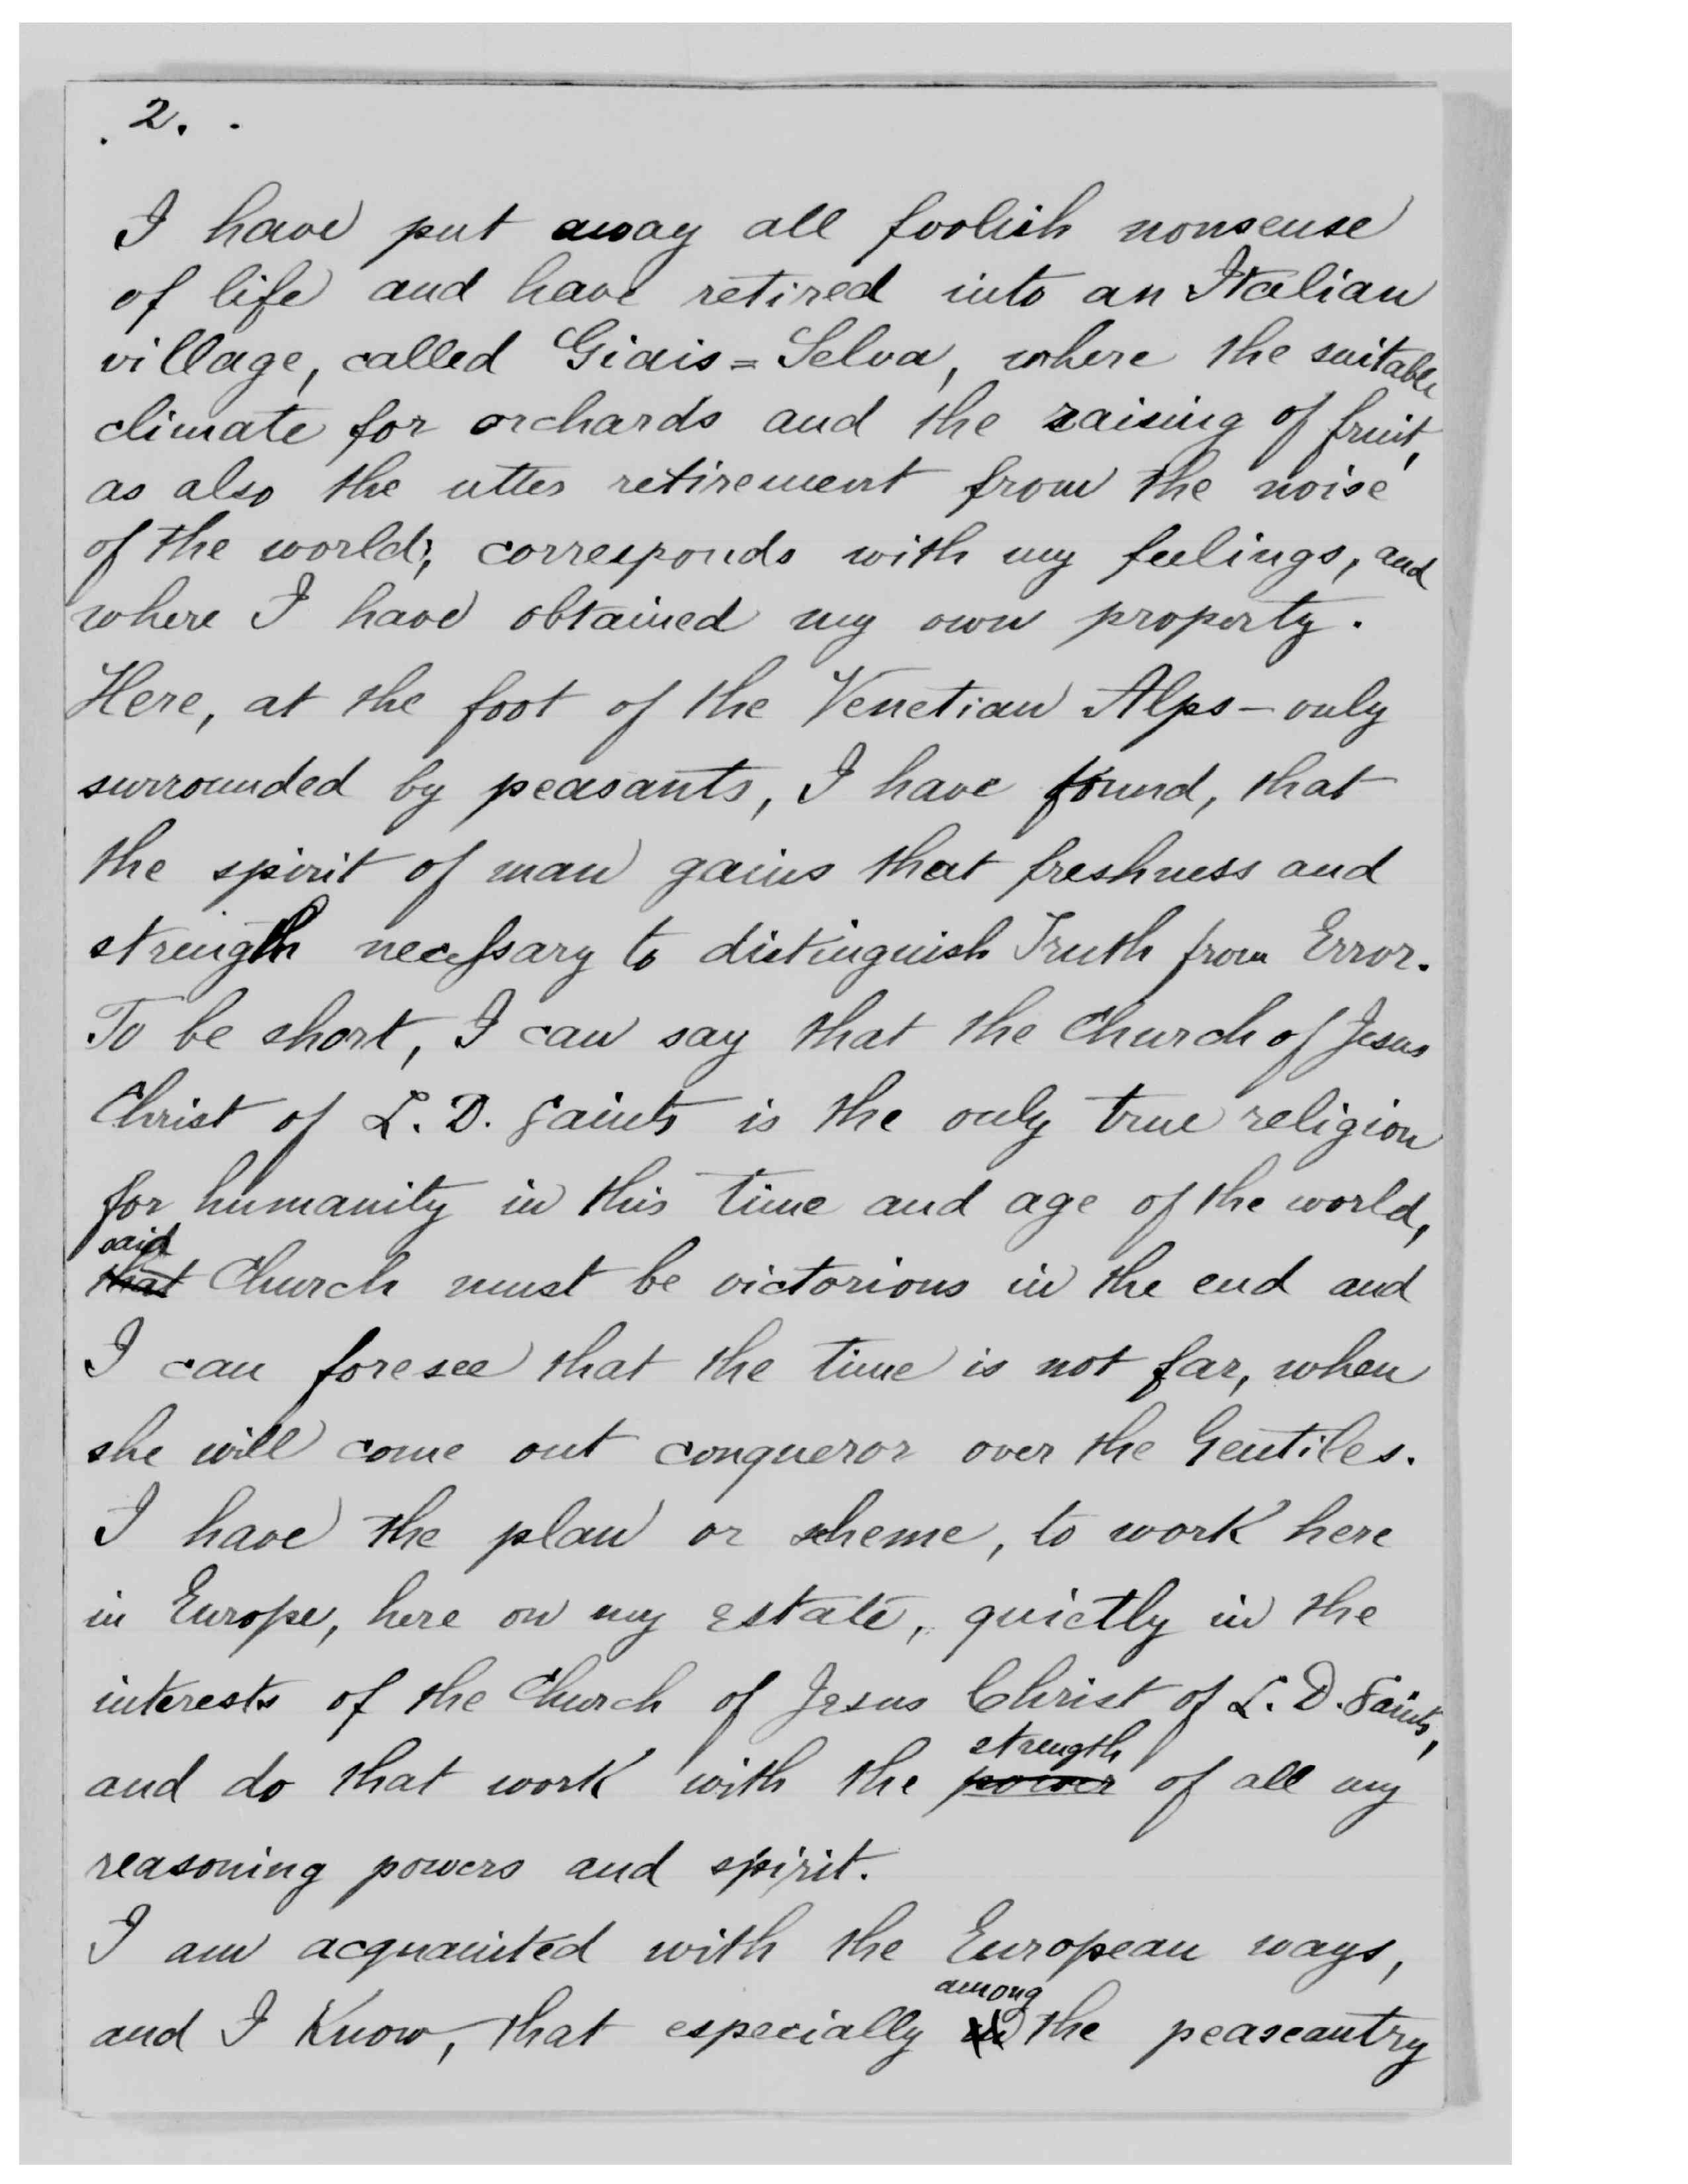 2.
I have put away all foolish nonsense
of life and have retired into an Italian
village, called Giais=Selva, where the suitable
climate for orchards and the raising of fruit,
as also the utter retirement from the noise
of the world; corresponds with my feelings, and
where I have obtained my own property.
Here, at the foot of the Venetian Alps – only
surrounded by peasants, I have found, that
the spirit of man gains that freshness and
strength necessary to distinguish Truth from Error.
To be short, I can say that the Church of Jesus
Christ of L. D. Saints is the only true religion
for humanity in this time and age of the world,
said
that Church must be victorious in the end and
I can foresee that the time is not far, when
she will come out conqueror over the Gentiles.
I have the plan or scheme, to work here
in Europe, here on my estate, quietly in the
interests of the Church of Jesus Christ of L. D. Saints,
strength
and do that work with the power of all my
reasoning powers and spirit.
I am acquainted with the European ways,
among
and I Know, that especially in the peaseantry